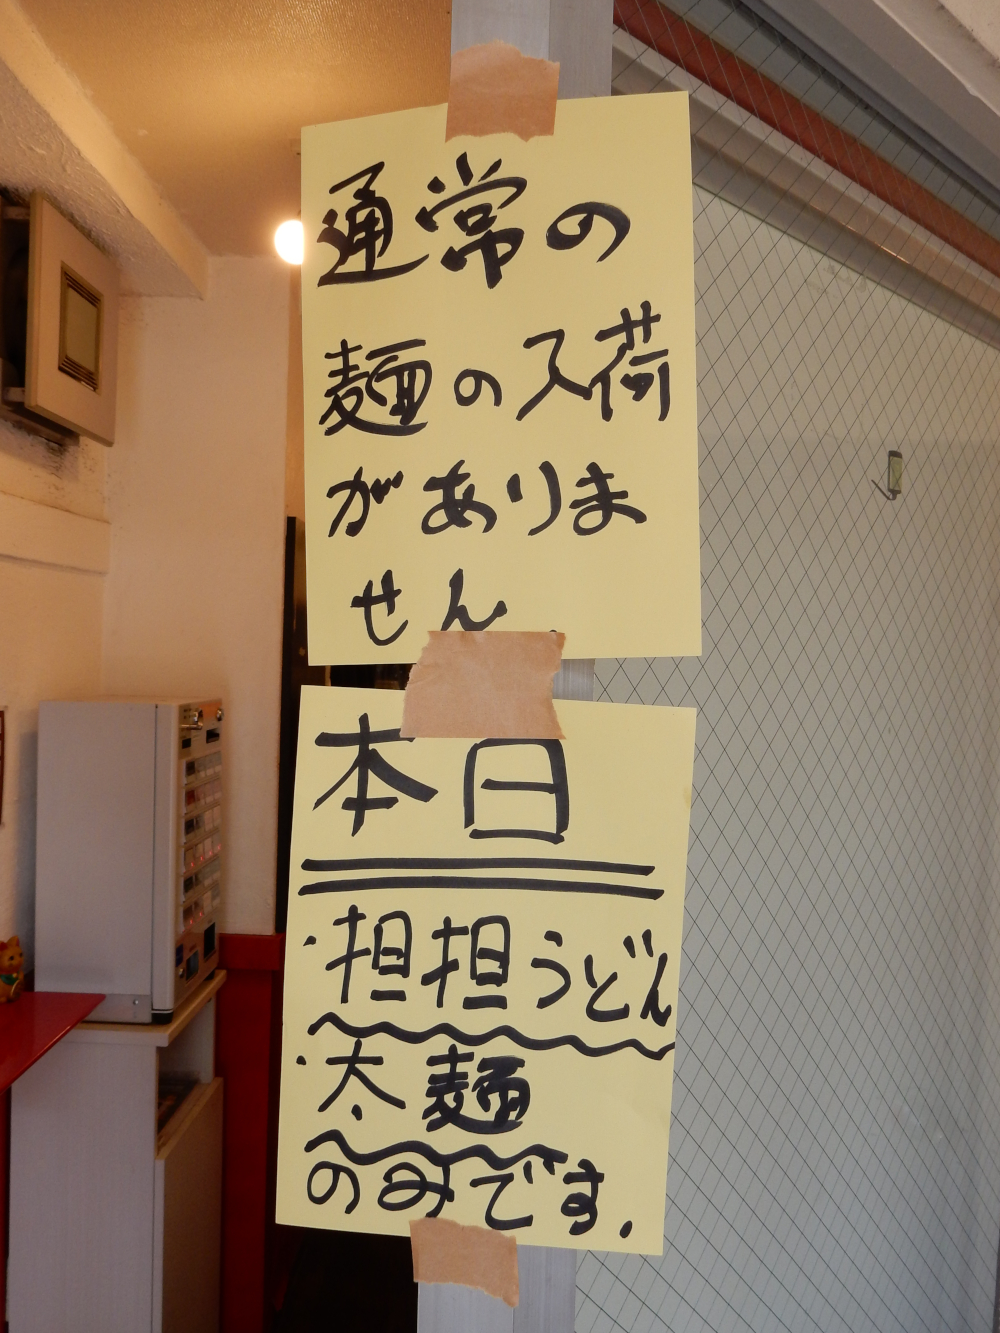 通常の
麺の入荷
がありま
せん.
本日
・担担うどん
・太麺
のみです.